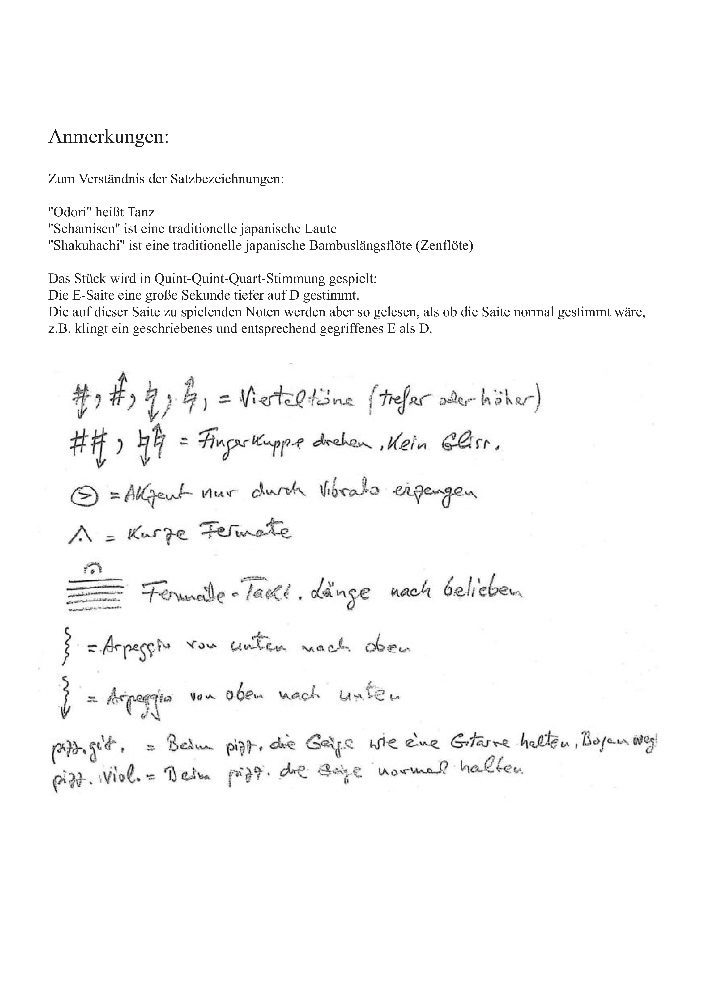 Anmerkungen:
Zum Verständnis der Satzbezeichnungen:
"Odori" heißt Tanz
"Schamisen" ist eine traditionelle japanische Laute
"Shakuhachi" ist eine traditionelle japanische Bambuslängsflöte (Zenflöte)
Das Stück wird in Quint-Quint-Quart-Stimmung gespielt:
Die E-Saite eine große Sekunde tiefer auf D gestimmt.
Die auf dieser Saite zu spielenden Noten werden aber so gelesen, als ob die Saite normal gestimmt wäre,
z.B. klingt ein geschriebenes und entsprechend gegriffenes E als D.
= Vierteltöne (tiefer oder höher)
= Fingerkuppe drehen, Kein Gliss.
= Akzent nur durch Vibrato erzeugen
= Kurze Fermate
Fermate-Takt. Länge nach belieben
= Arpeggio von unten nach oben
= Arpeggio von oben nach unten
pizz.git. = Beim pizz. die Geige wie eine Gitarre halten, Bogen weg
pizz. Viol. = Beim pizz. die Geige normal halten